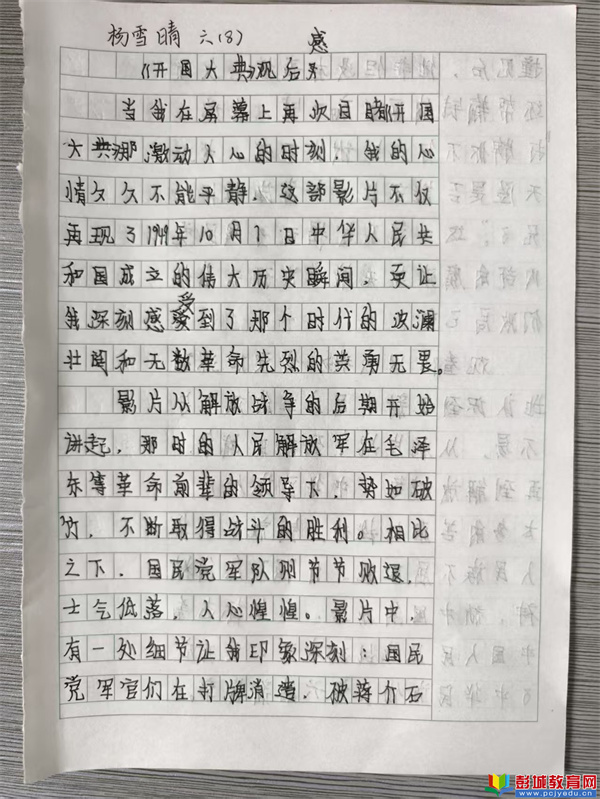 杨雪晴 六(8)
《开国大典》观后感
当我在屏幕上再次目睹《开国
大典》那激动人心的时刻，我的心
情久久不能平静。这部影片不仅
再现了1949年10月1日中华人民共
和国成立的伟大历史瞬间，更让
我深刻感受到了那个时代的波澜
壮阔和无数革命先烈的英勇无畏。
影片从解放战争的后期开始
讲起，那时的人民解放军在毛泽
东等革命前辈的领导下，势如破
竹，不断取得战斗的胜利。相比
之下，国民党军队则节节败退，
士气低落，人心惶惶。影片中，
有一处细节让我印象深刻：国民
党军官们在打牌消遣，被蒋介石
彭城教育网
www.pcjyedu.cn